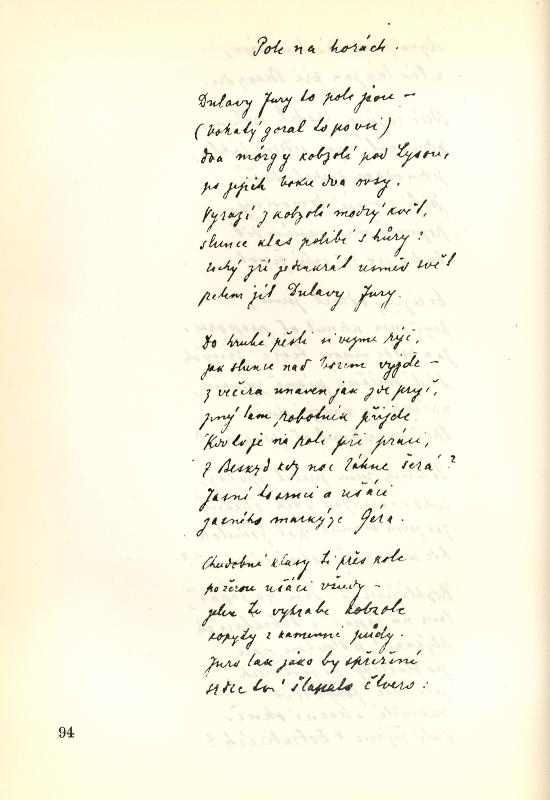 Pole na horách.
Dulavy Jury to pole jsou —
(bohatý goral to po vsi)
dva mórgy kobzolí pod Lysou,
po jejich boku dva ovsy.
Vyrazí z kobzolí modrý květ,
slunce klas políbí s hůry:
tichý zří jedenkrát úsměv svět
polem jít Dulavy Jury.
Do hrubé pěsti si vezme rýč,
jak slunce nad borem vyjde —
z večera unaven jak jde pryč,
jiný tam robotník přijde.
Kdo to je na poli při práci,
z Beskyd kdy noc táhne šerá?
Jasní to srnci a ušáci
jasného markýze Géra.
Chudobné klasy ti přes pole
požerou ušáci všudy —
jelen ti vyhrabe kobzole
kopyty z kamenné půdy.
Juro tak jako by spřežení
srdce tvé šlapalo čtvero:
94